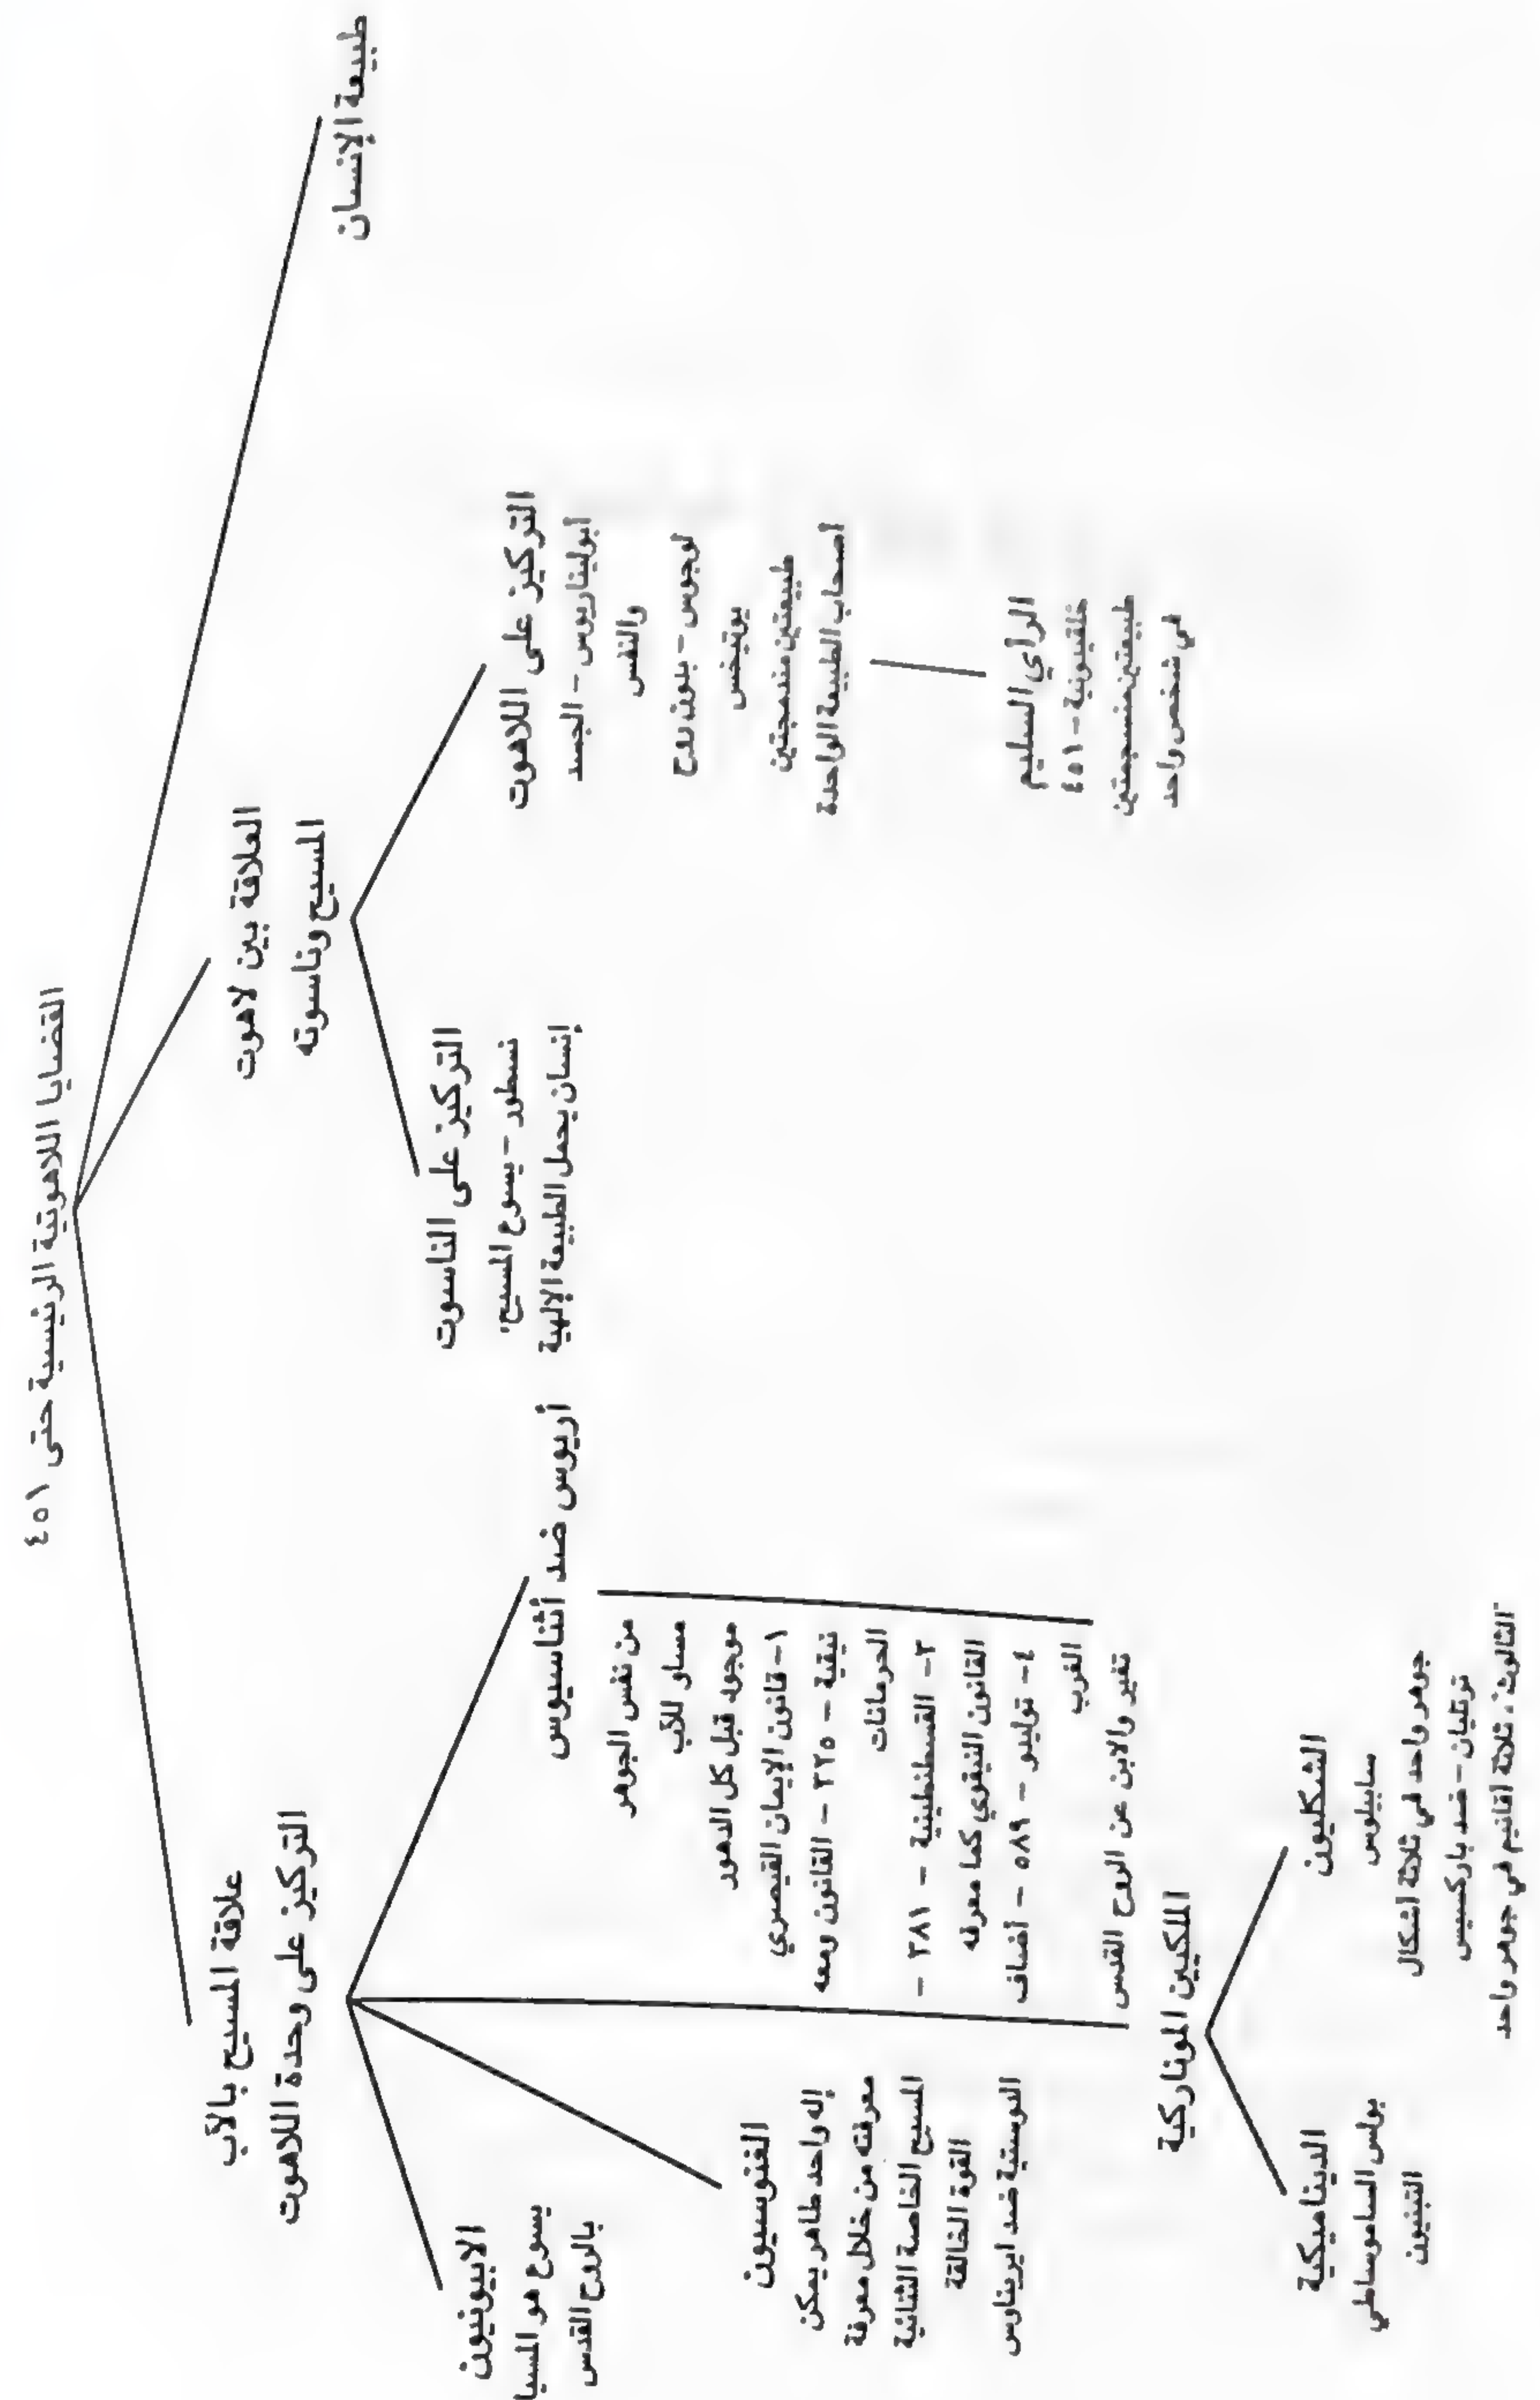 القضايا اللاهوتية الرئيسية حتى ٤٥١
طبيعة الإنسان
العلاقة بين لاهوت
المسيح وناسوته
التركيز على اللاهوت
أبوليناريوس - الجسد
والنفس
لوجوس - بدون روح
يوتيخس
طبيعتين مندمجتين
أصحاب الطبيعة الواحدة
الرأي السليم
خلقيدونية - ٤٥١
طبيعتين منسجمتين
في شخص واحد
التركيز على الناسوت
نسطور - يسوع المسيح"
إنسان يحمل الطبيعة الإلهية
علاقة المسيح بالآب
التركيز على وحدة اللاهوت
أريوس ضد أثناسيوس
من نفس الجوهر
مساو للآب
موجود قبل كل الدهور
١- قانون الإيمان القيصري
نيقية - ٣٢٥ - القانون ومعه
الحرمانات
٣- القسطنطينية - ٣٨١ -
القانون النيقوي كما معرفه
٤- توليدو - ٥٨٩ - أضاف
الغرب
تغير والابن عن الروح القدس
الملكيين الموناركية
الشكليون
سابيلوس
جوهر واحد في ثلاثة أشكال
ترتليان - ضد باركسيس
"الثالوث"، ثلاثة أقانيم في جوهر واحد
الديناميكية
بولس الساموساطي
التبنيون
الغنوسيون
إله واحد طاهر يمكن
معرفته من خلال معرفة
المسيح الخاصة الثنائية
القوة الخالقة
الدوسيتية ضد ايريناوس
الابيونيون
يسوع هو المسيا
بالروح القدس